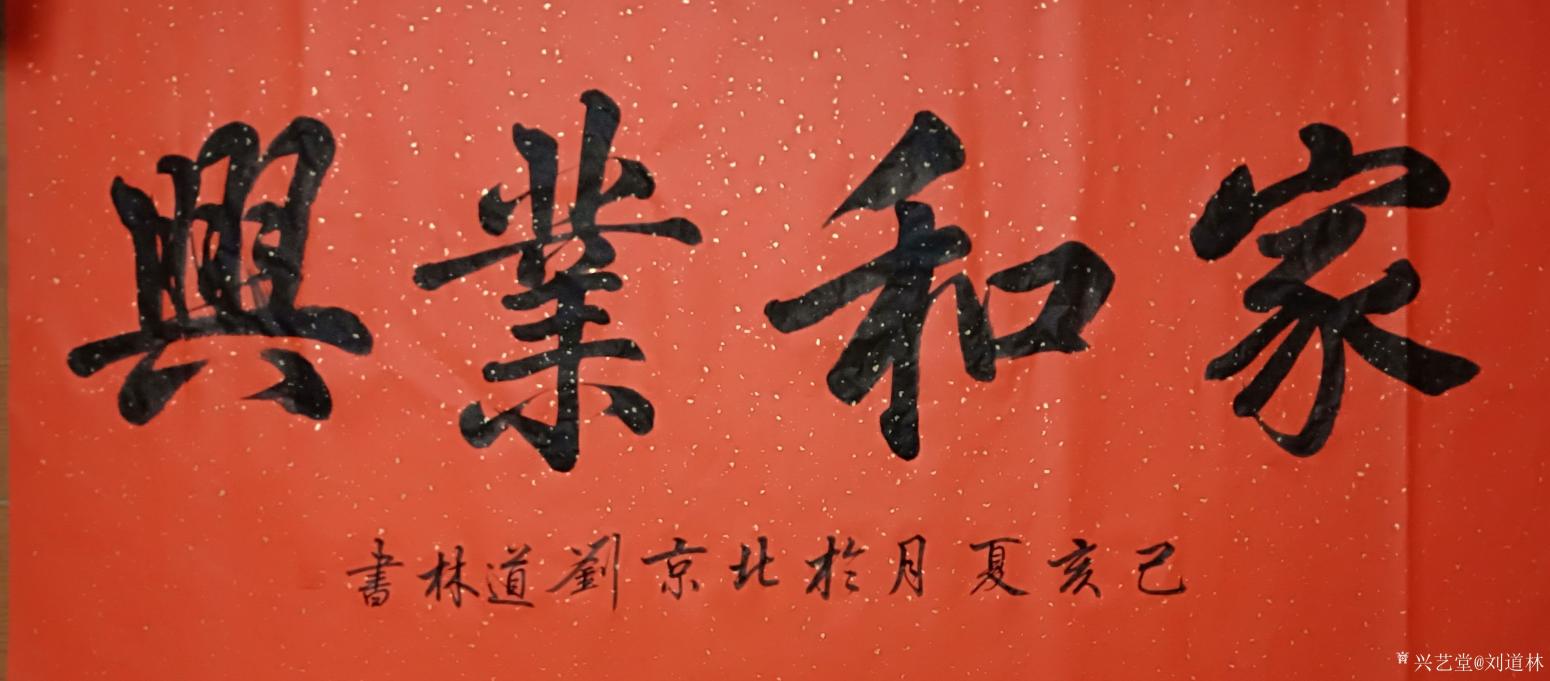 家和業興
己亥夏月於北京劉道林書
兴艺堂@刘道林